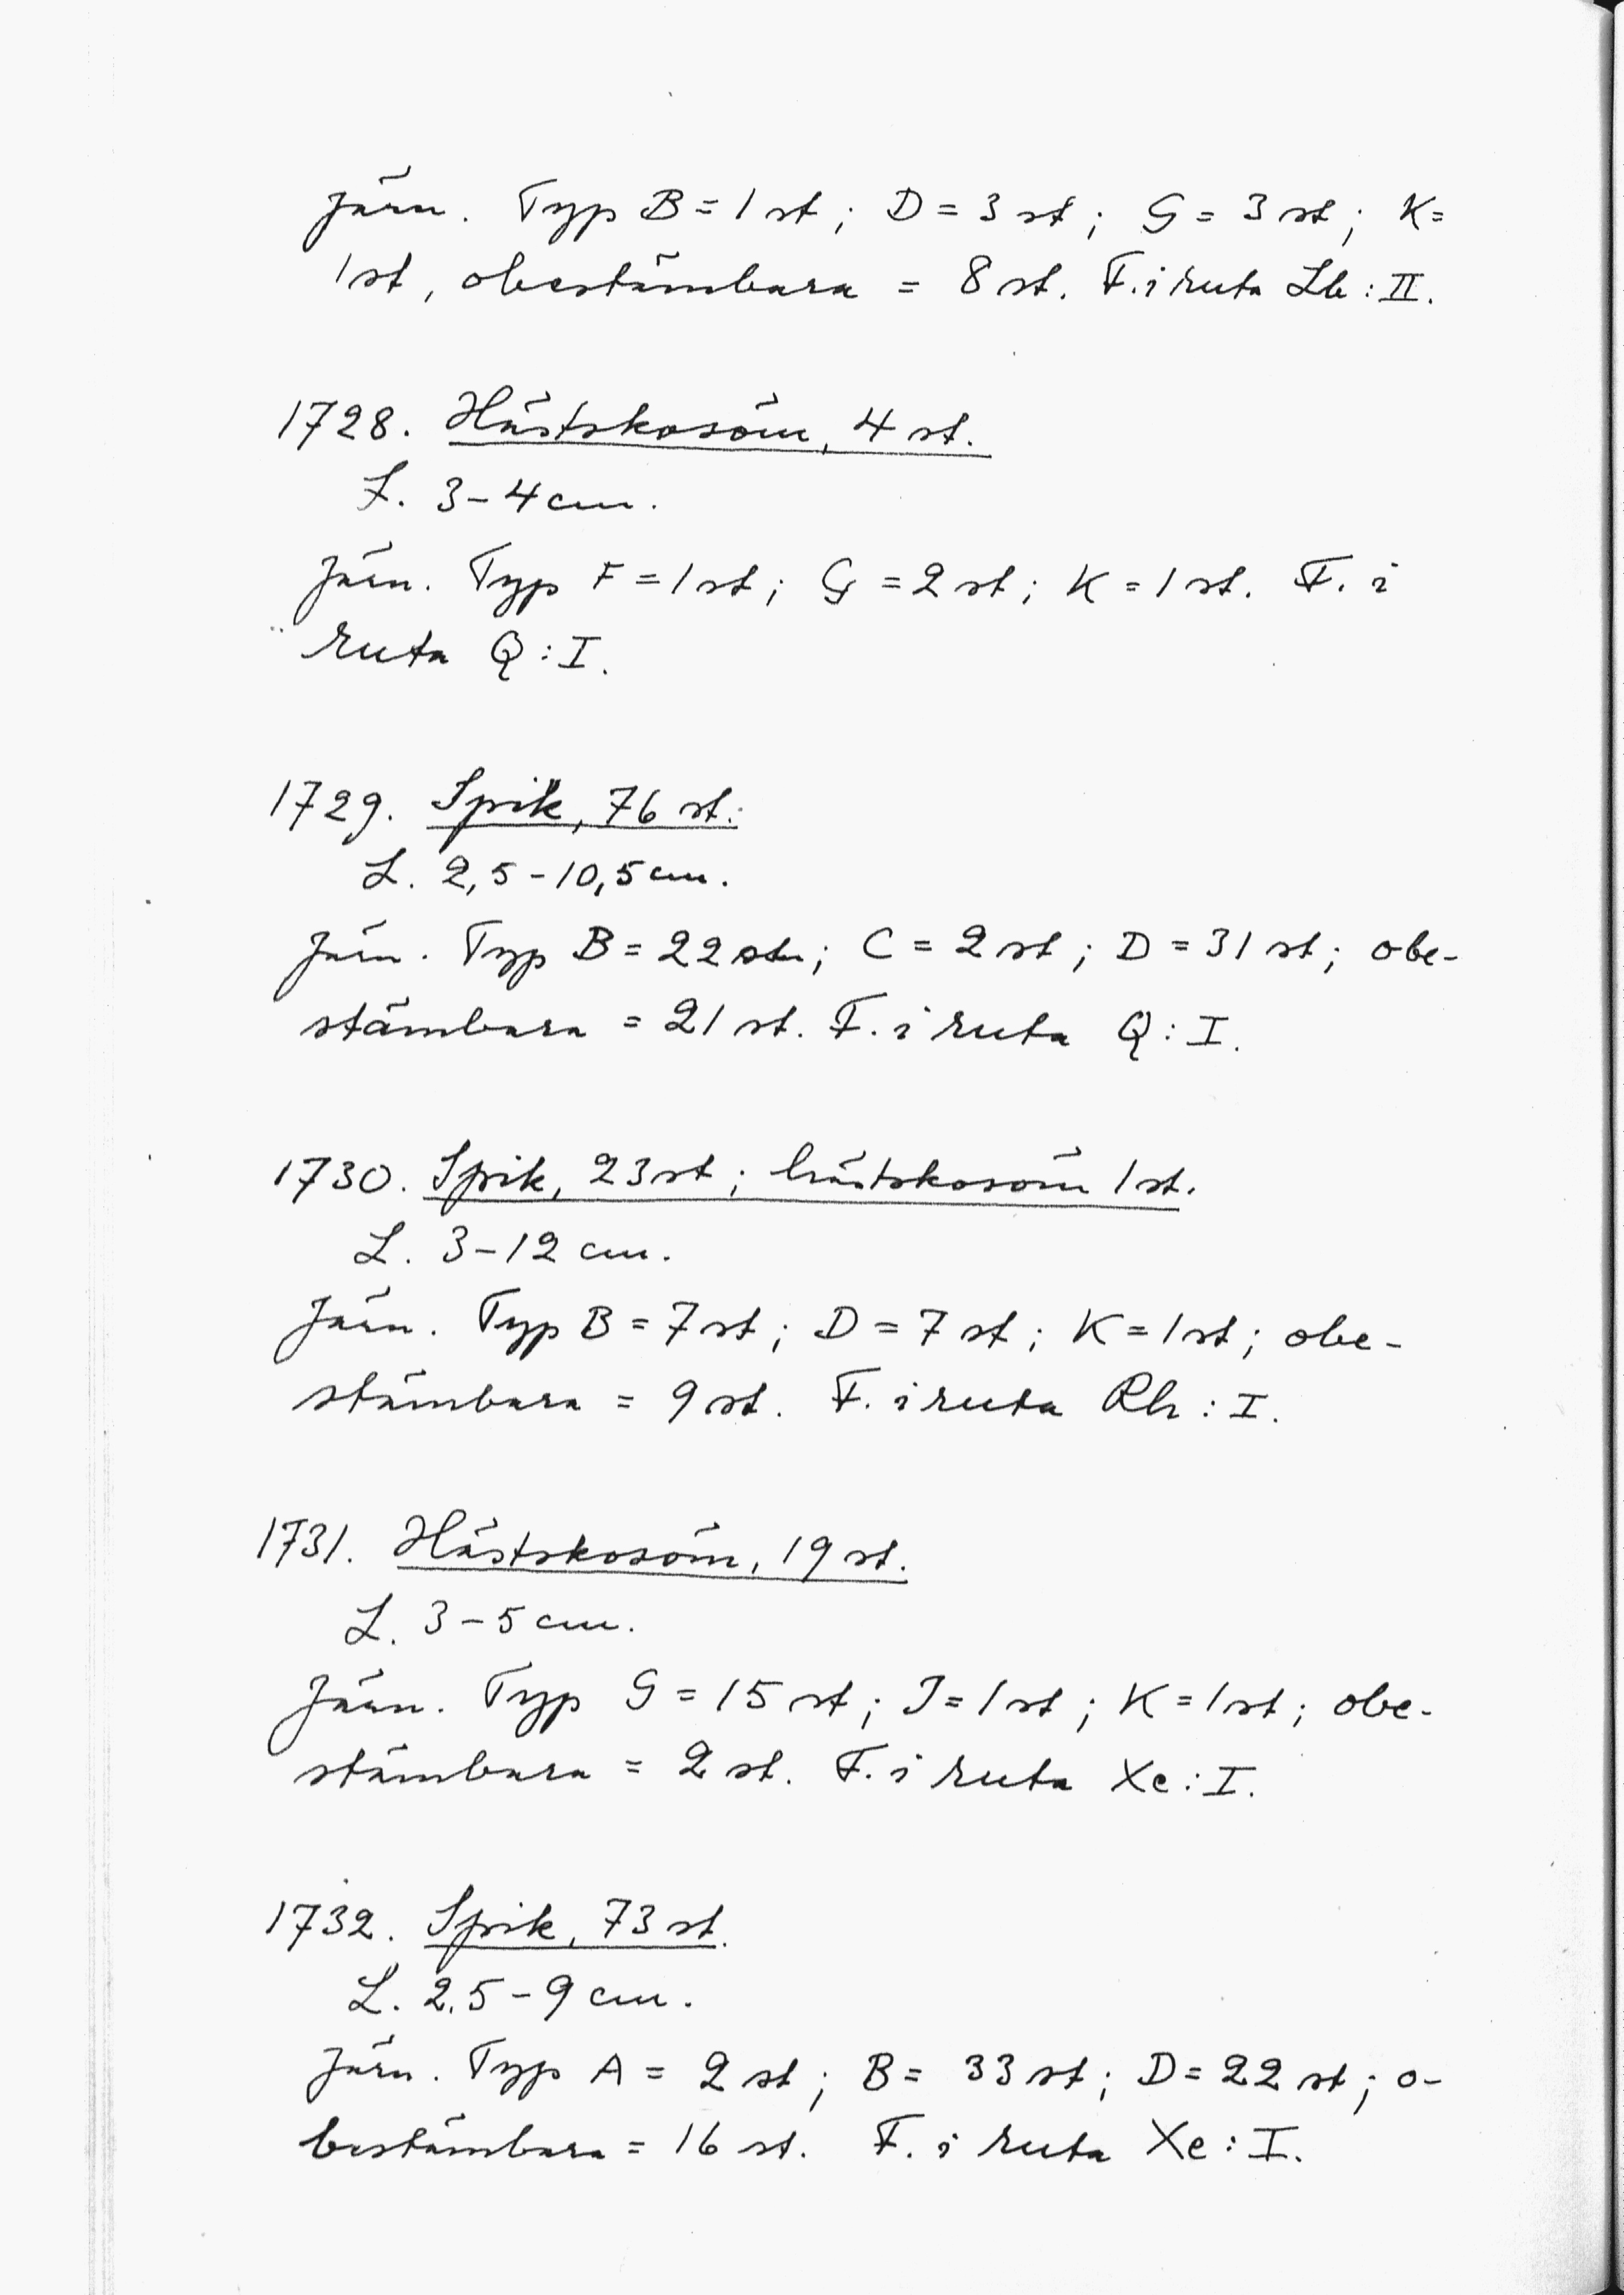 Järn. Typ B = 1 st; D = 3 st; G = 3 st; K =
1 st, obestämbara = 8 st. F. i ruta Lb : II.
1728. Hästskosöm, 4 st.
L. 3-4 cm.
Järn. Typ F = 1 st; G = 2 st; K = 1 st. F. i
ruta Q : I.
1729. Spik, 76 st.
L. 2,5-10,5 cm.
Järn. Typ B = 22 st; C = 2 st; D = 31 st; obe-
stämbara = 21 st. F. i ruta Q : I.
1730. Spik, 23 st; hästskosöm 1 st.
L. 3-12 cm.
Järn. Typ B = 7 st; D = 7 st; K = 1 st; obe-
stämbara = 9 st. F. i ruta Rh : I.
1731. Hästskosöm, 19 st.
L. 3-5 cm.
Järn. Typ G = 15 st; J = 1 st; K = 1 st; obe-
stämbara = 2 st. F. i ruta Xe : I.
1732. Spik, 73 st.
L. 2,5-9 cm.
Järn. Typ A = 2 st; B = 33 st; D = 22 st; o-
bestämbara = 16 st. F. i ruta Xe : I.